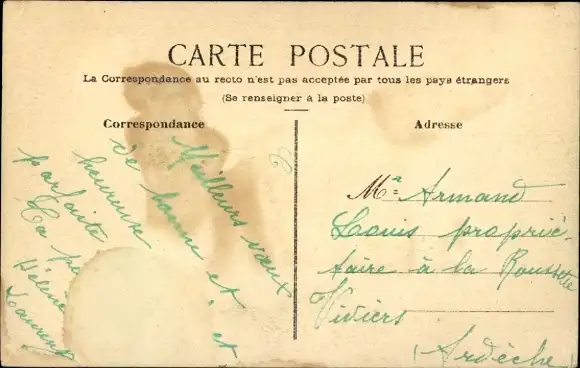 CARTE POSTALE
La Correspondance au recto n'est pas acceptée par tous les pays étrangers
(Se renseigner à la poste)
Correspondance
Adresse
Meilleurs vœux
de bonne et
heureuse et
parfaite
Ta
Hélène
Laurent
Mr Armand
Louis proprié-
taire à la Roussette
Viviers
(Ardèche)